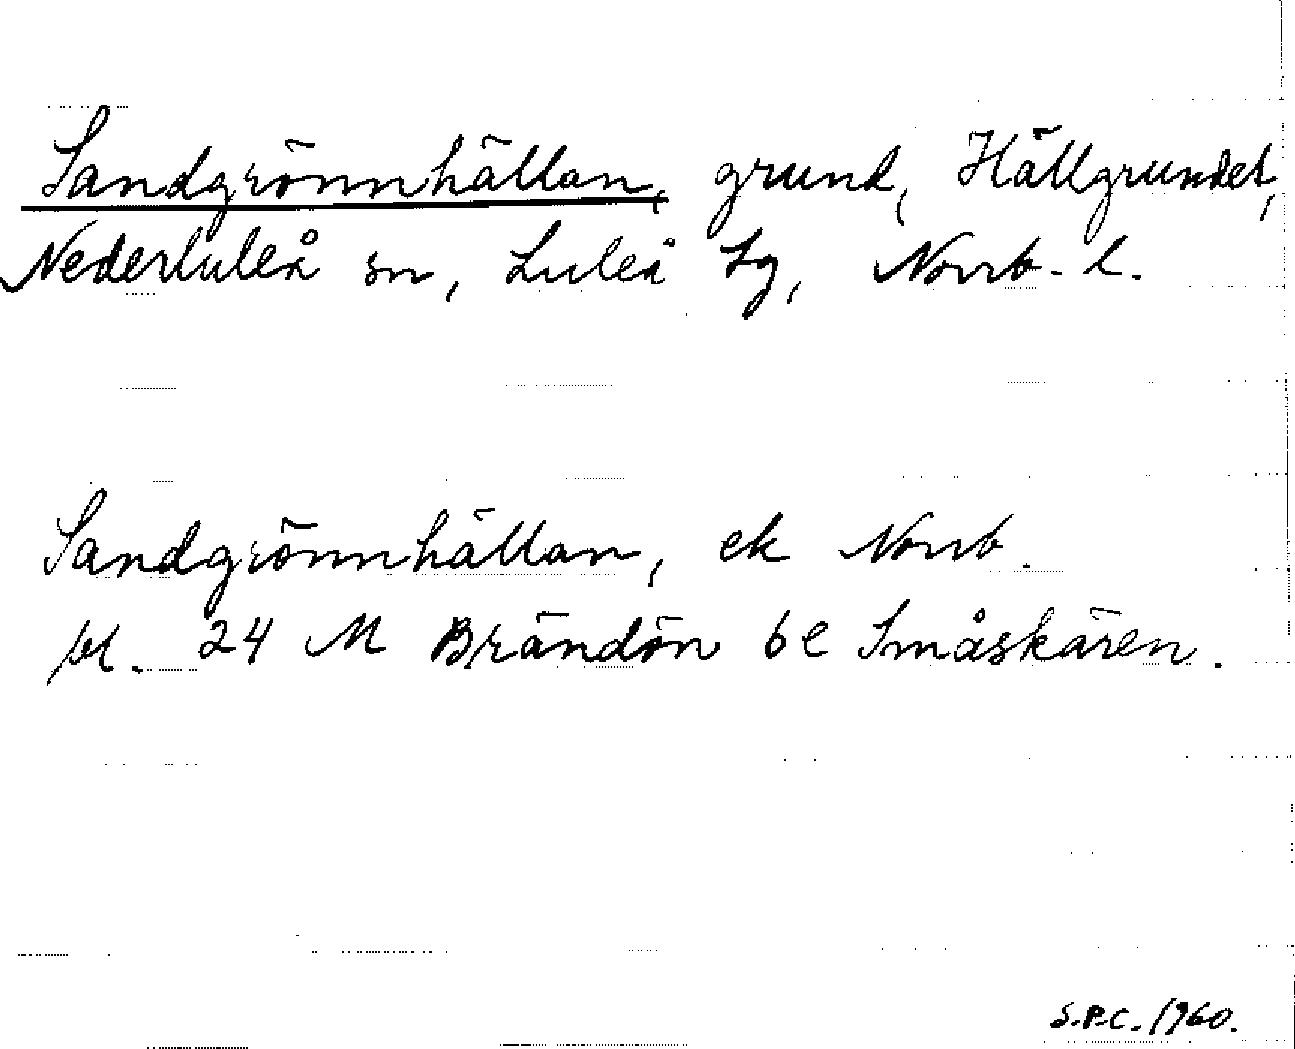 Sandgrönnhällan, grund, Hällgrundet,
Nederluleå sn, Luleå lg, Norrb. l.
Sandgrönnhällan, ek Norrb.
bl. 24 M Brändön 6 e Småskären.
S.P.C. 1960.